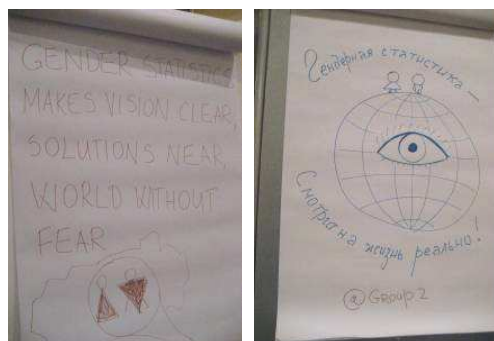 GENDER STATISTICS
MAKES VISION CLEAR,
SOLUTIONS NEAR,
WORLD WITHOUT
FEAR
Гендерная статистика —
Смотри на жизнь реально!
@ GROUP 2